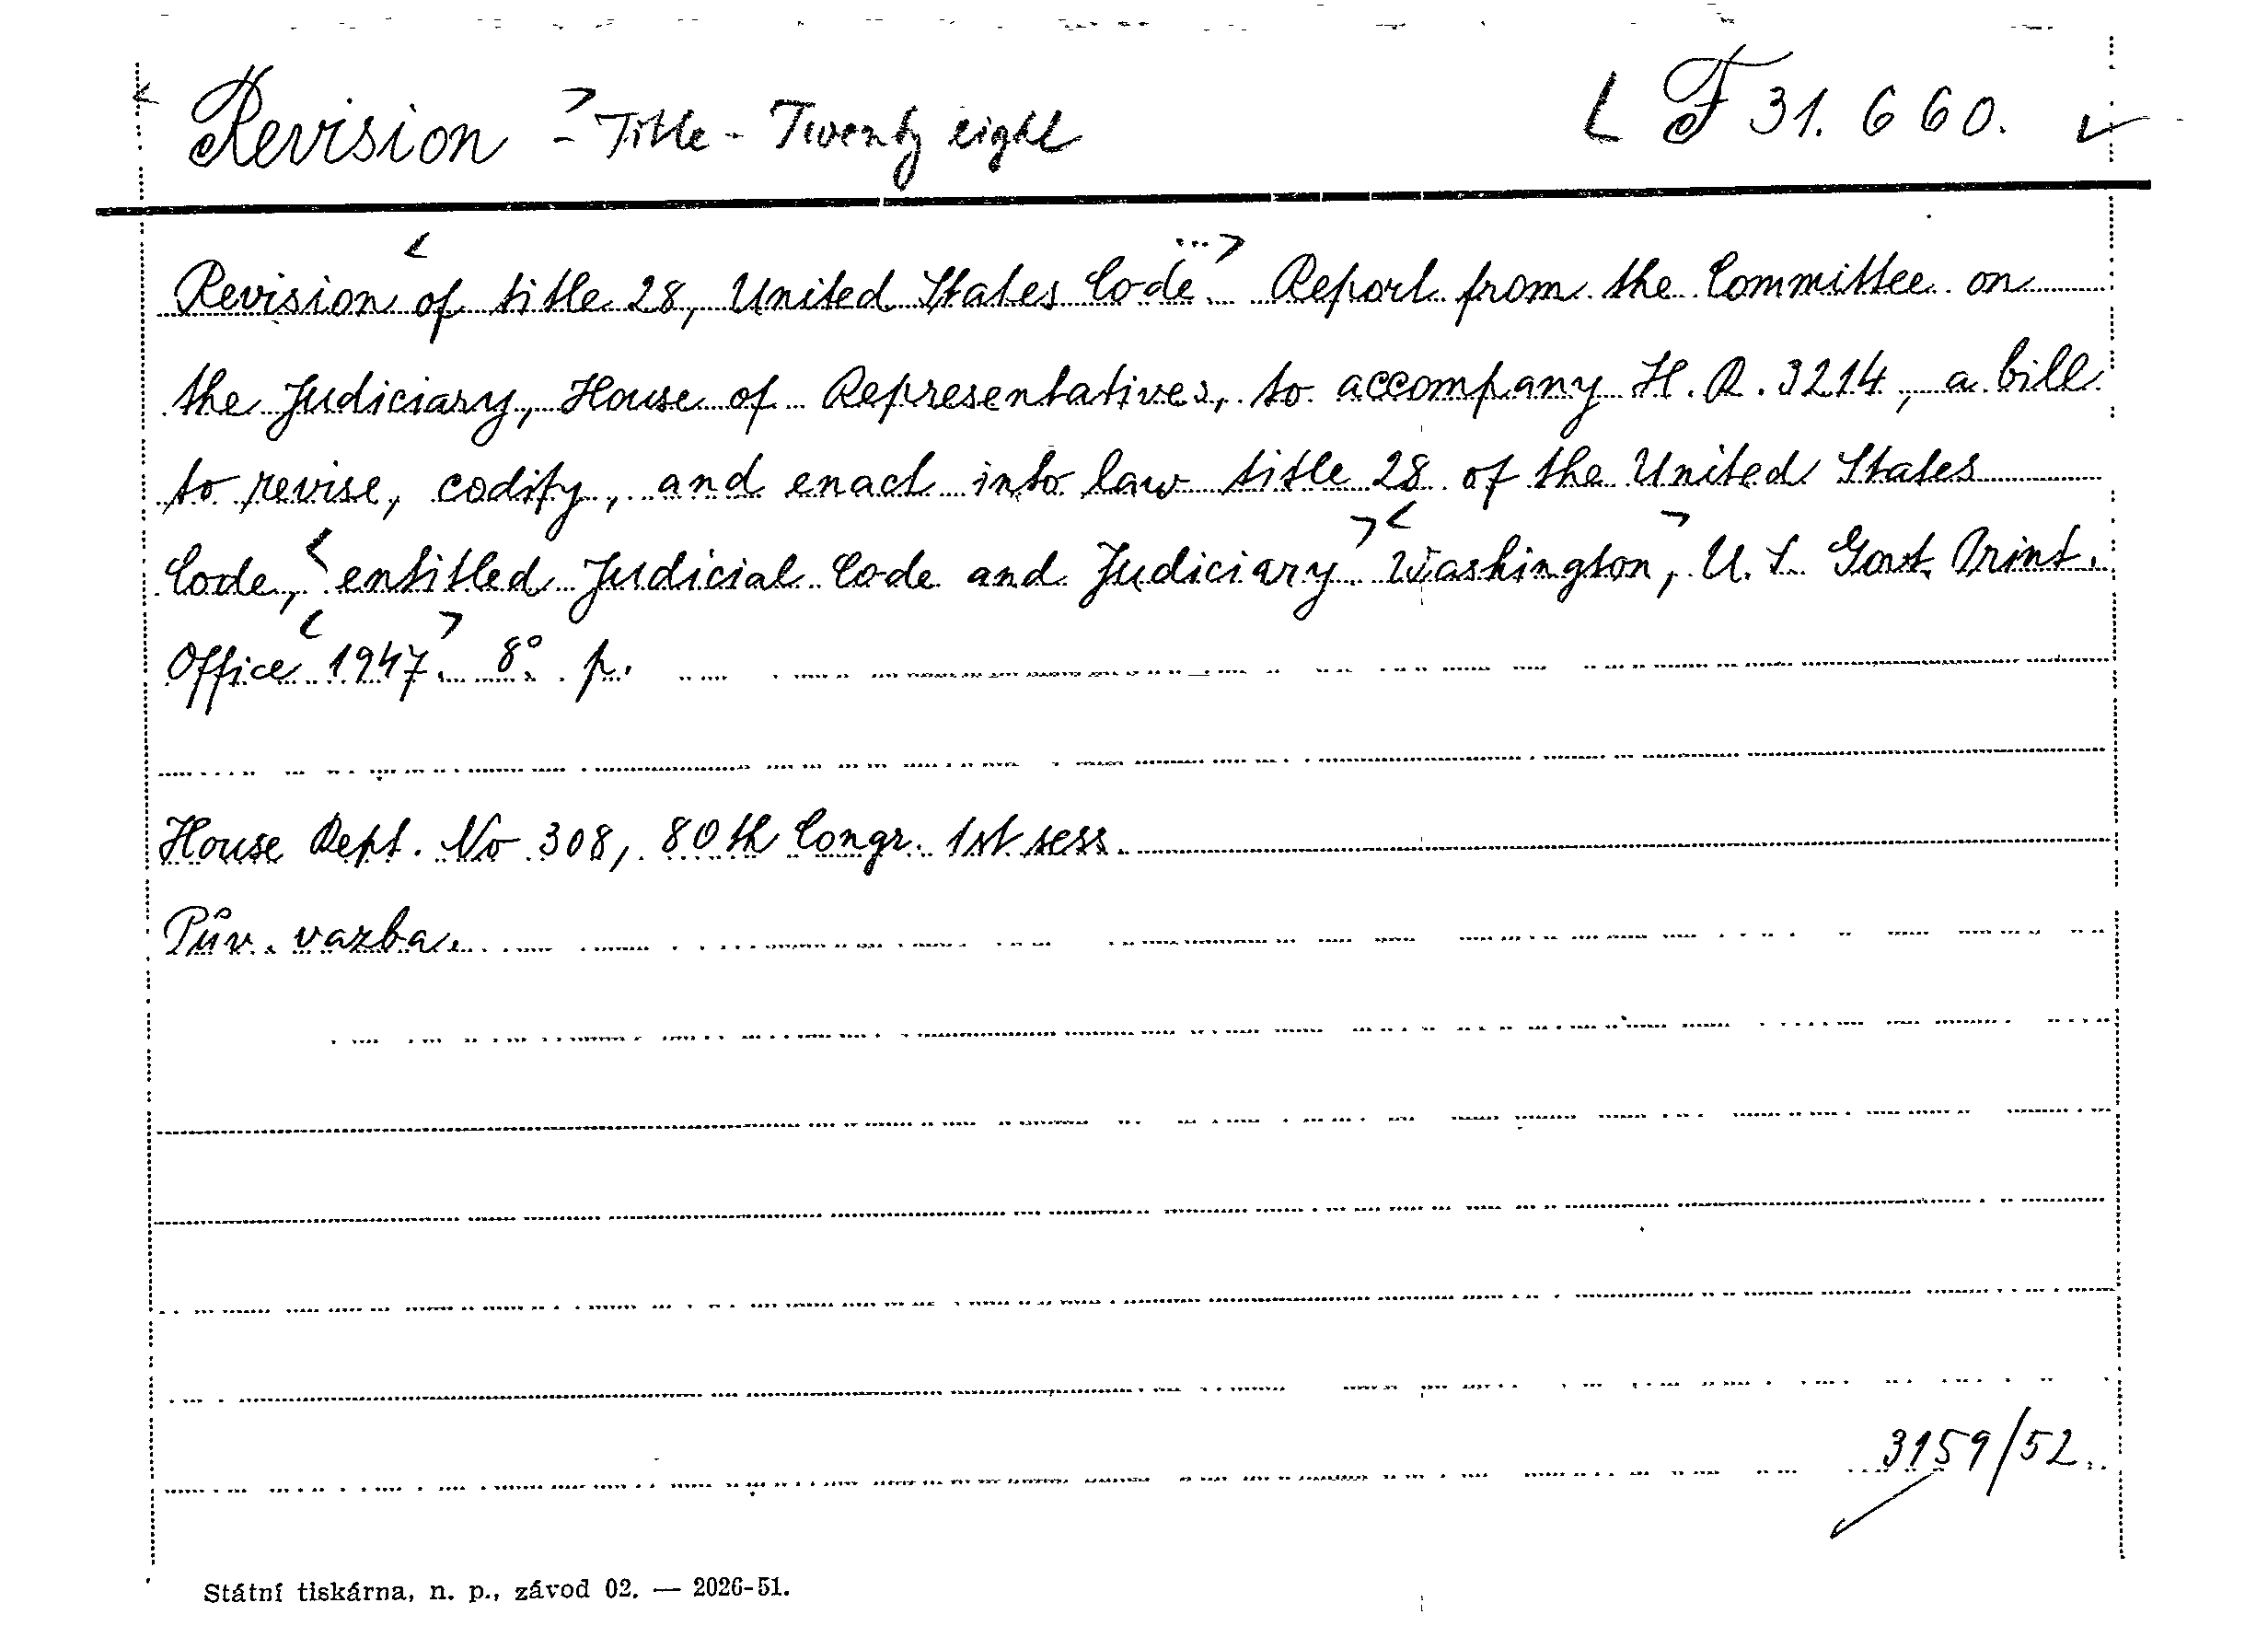 Revision - Title - Twenty eight F 31.660.
Revision of title 28, United States Code... Report from the Committee on
the Judiciary, House of Representatives, to accompany H. R. 3214, a bill
to revise, codify, and enact into law title 28 of the United States
Code, entitled Judicial Code and Judiciary. Washington, U. S. Govt. Print.
Office 1947. 8° p.
House Rept. No 308, 80th Congr. 1st sess.
Pův. vazba.
3159/52.
Státní tiskárna, n. p., závod 02. — 2026-51.